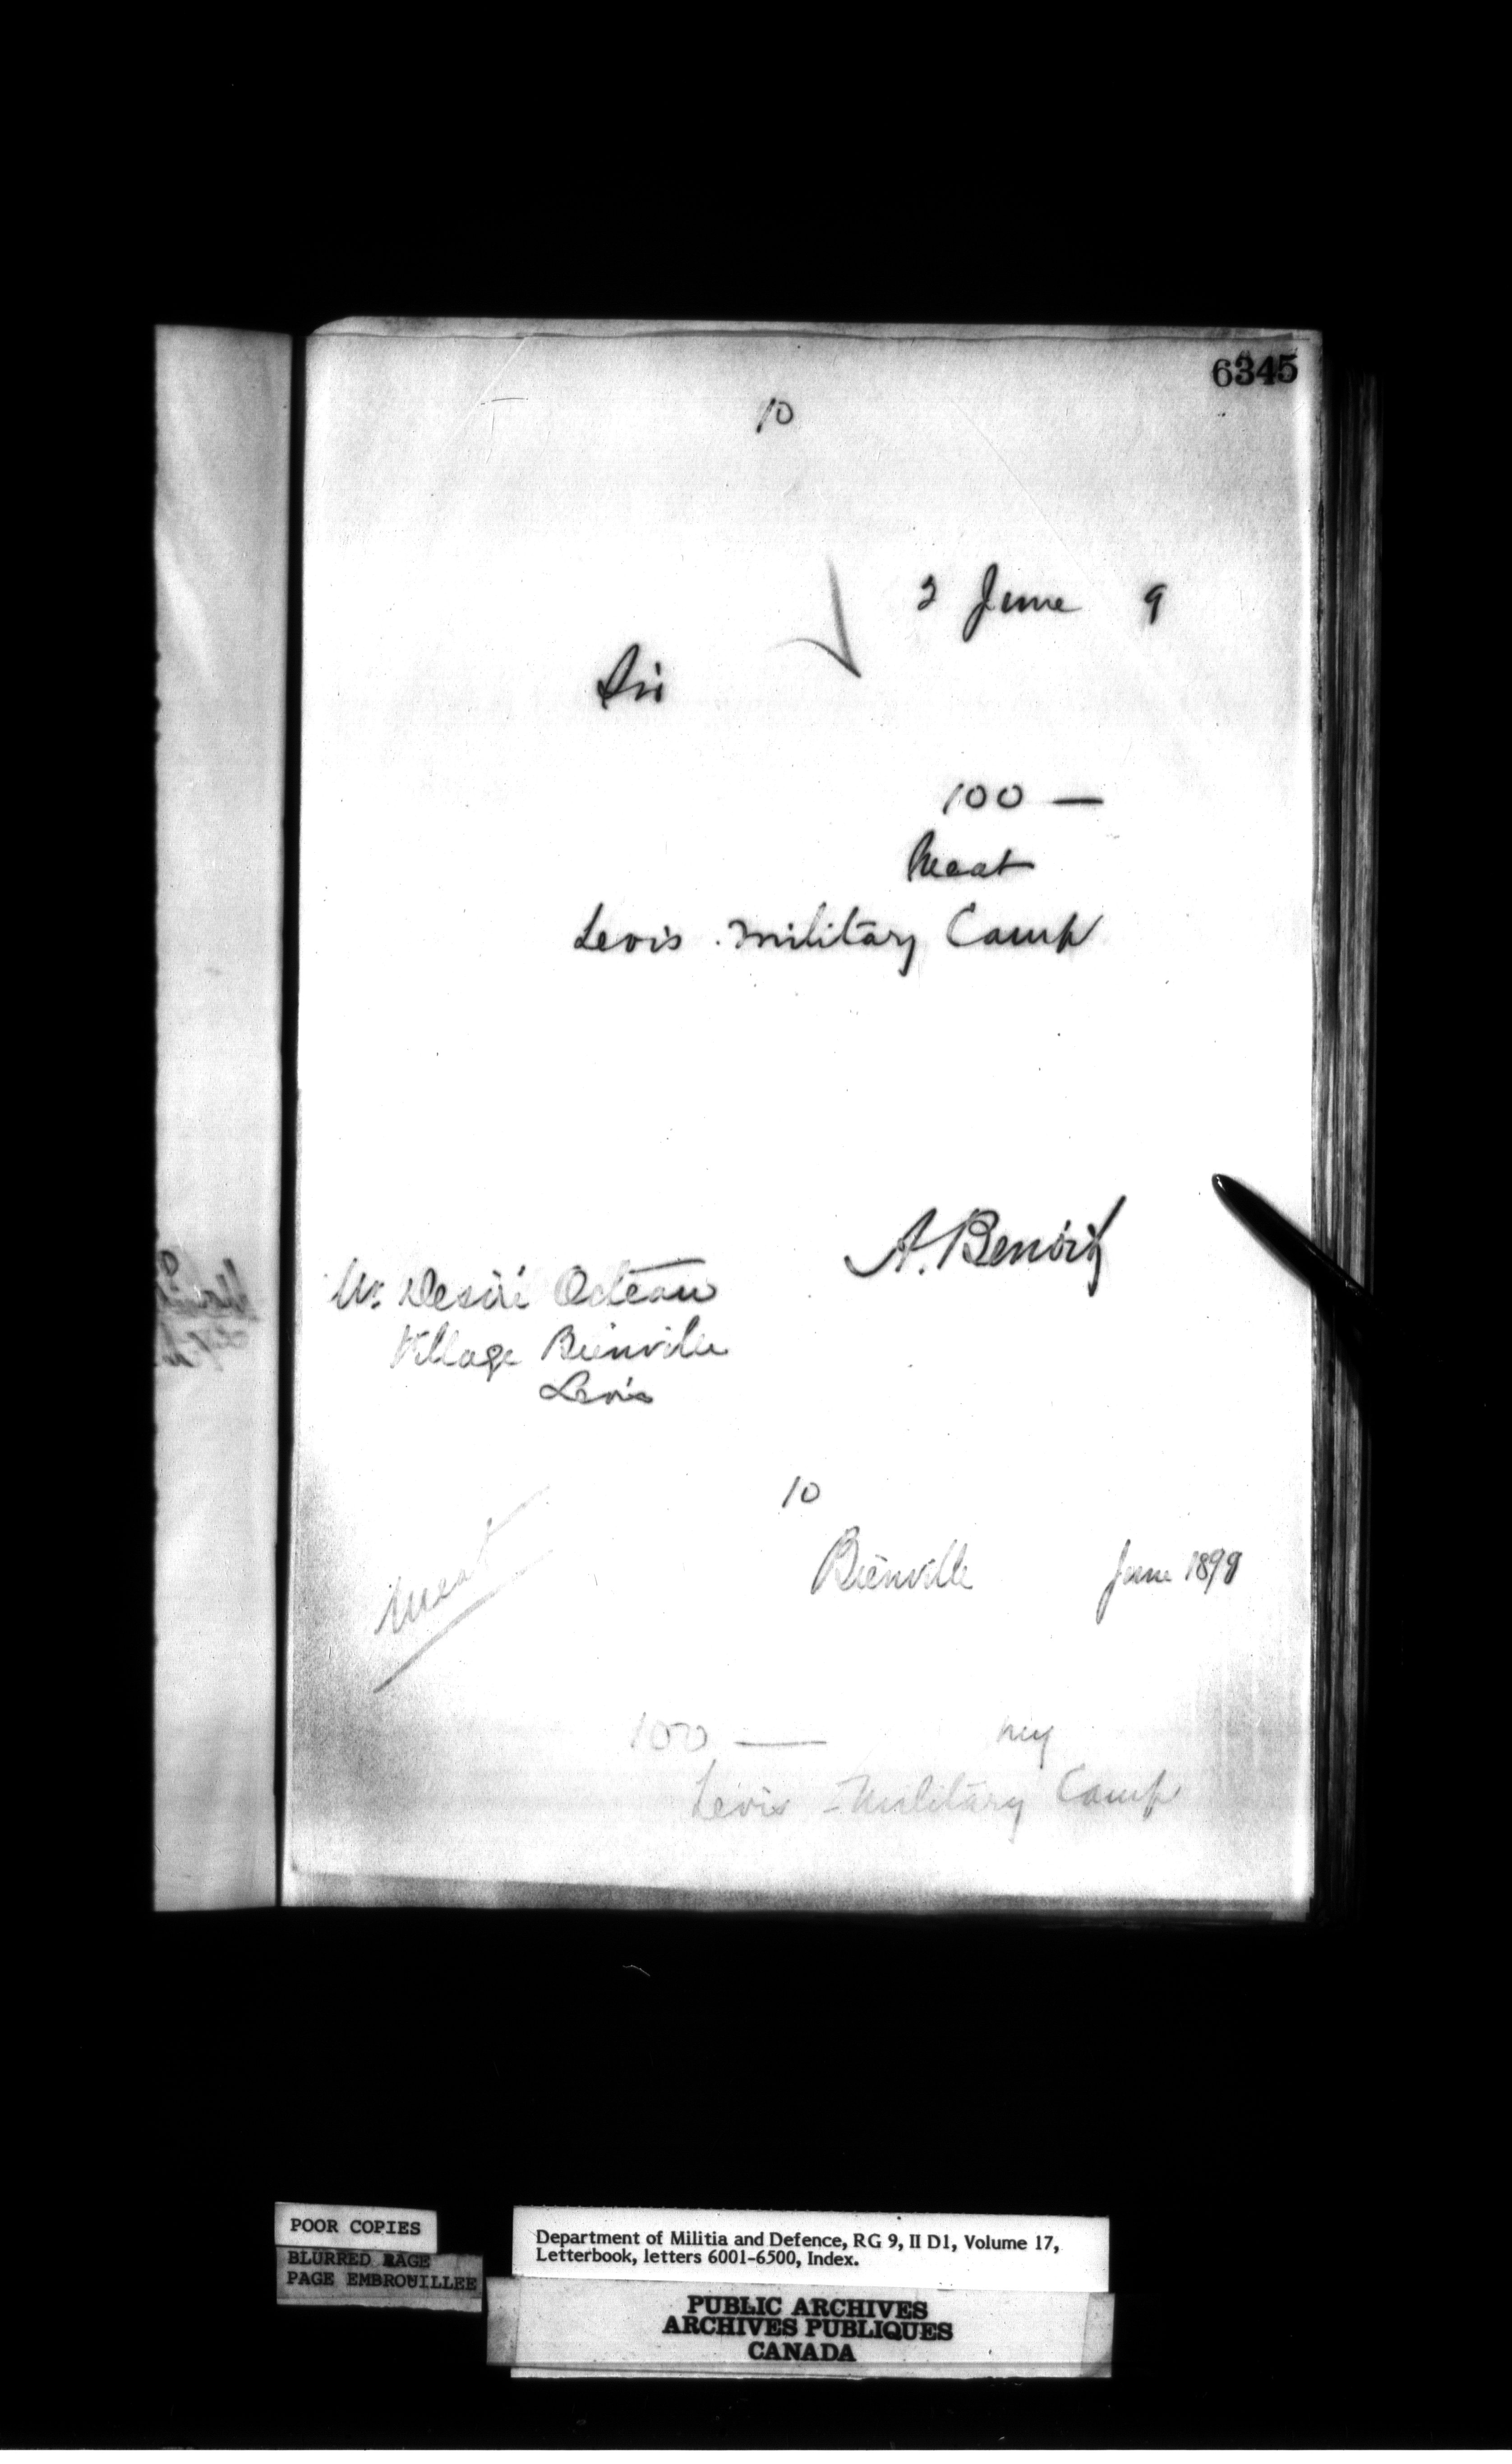 6345
10
2 June 9
Sir
100 —
Meat
Levis Military Camp
A. Benoit
Mr Desiré Octeau
Village Bienville
Levis
10
Bienville June 1899
Meat
100 — my
Levis Military Camp
POOR COPIES
BLURRED PAGE
PAGE EMBROUILLEE
Department of Militia and Defence, RG 9, II D1, Volume 17,
Letterbook, letters 6001-6500, Index.
PUBLIC ARCHIVES
ARCHIVES PUBLIQUES
CANADA